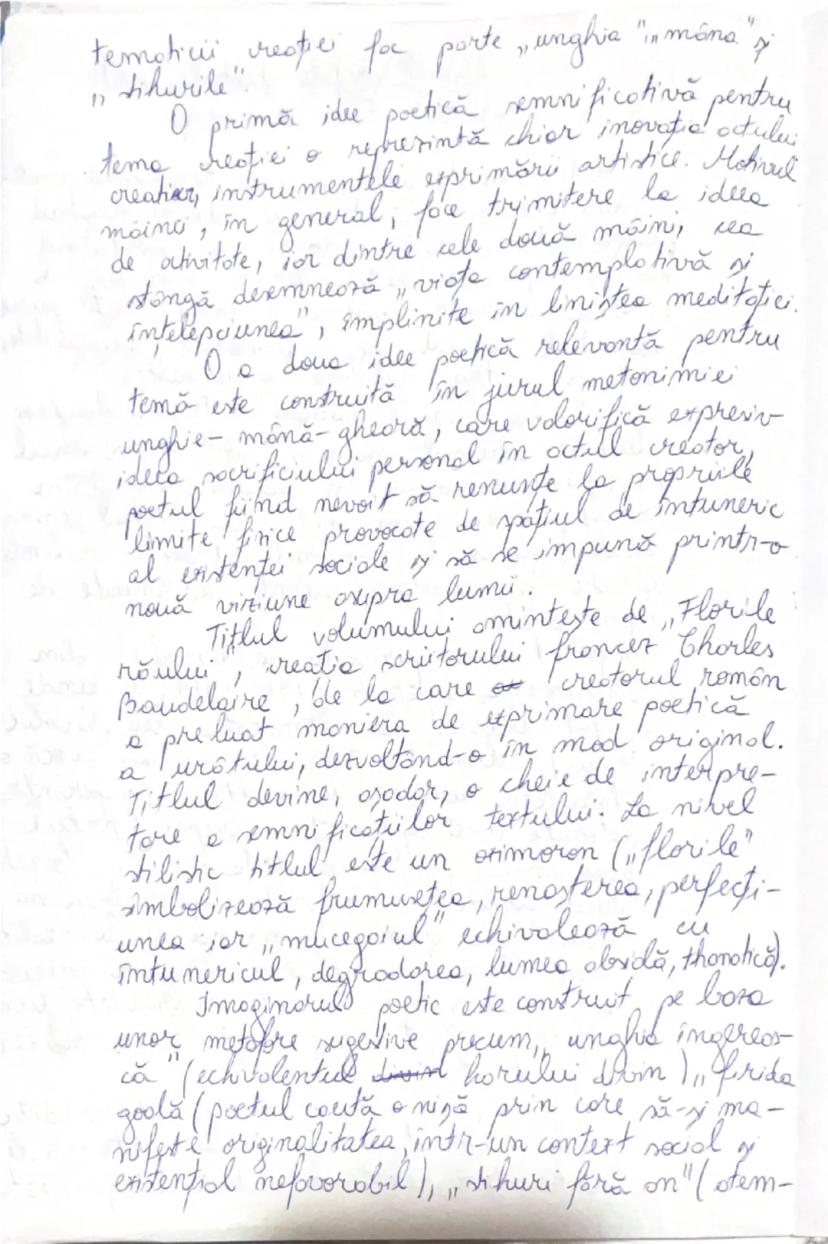 tematicii creației fac parte „unghia”, „mâna” și
„stihurile”.
O primă idee poetică semnificativă pentru
tema creației o reprezintă chiar inovația actului
creator, instrumentele exprimării artistice. Motivul
mâinii, în general, face trimitere la ideea
de activitate, iar dintre cele două mâini, cea
stângă desemnează „viața contemplativă și
înțelepciunea”, împlinite în liniștea meditației.
O a doua idee poetică relevantă pentru
temă este construită în jurul metonimiei
unghie-mână-gheară, care valorifică expresiv
ideea sacrificiului personal în actul creator,
poetul fiind nevoit să renunțe la propriile
limite fizice provocate de spațiul de întuneric
al existenței sociale și să se impună printr-o
nouă viziune asupra lumii.
Titlul volumului amintește de „Florile
răului”, creația scriitorului francez Charles
Baudelaire, de la care creatorul român
a preluat maniera de exprimare poetică
a urâtului, dezvoltând-o în mod original.
Titlul devine, așadar, o cheie de interpre-
tare a semnificațiilor textului. La nivel
stilistic titlul este un oximoron („florile”
simbolizează frumusețea, renașterea, perfecți-
unea iar „mucegaiul” echivalează cu
întunericul, degradarea, lumea obsidă, thanatică).
Imaginarul poetic este construit pe baza
unor metafore sugestive precum „unghia îngereas-
că” (echivalentul harului divin) „firida
goală (poetul caută o nișă prin care să-și ma-
nifeste originalitatea, într-un context social și
existențial nefavorabil), „stihuri fără an” (atem-